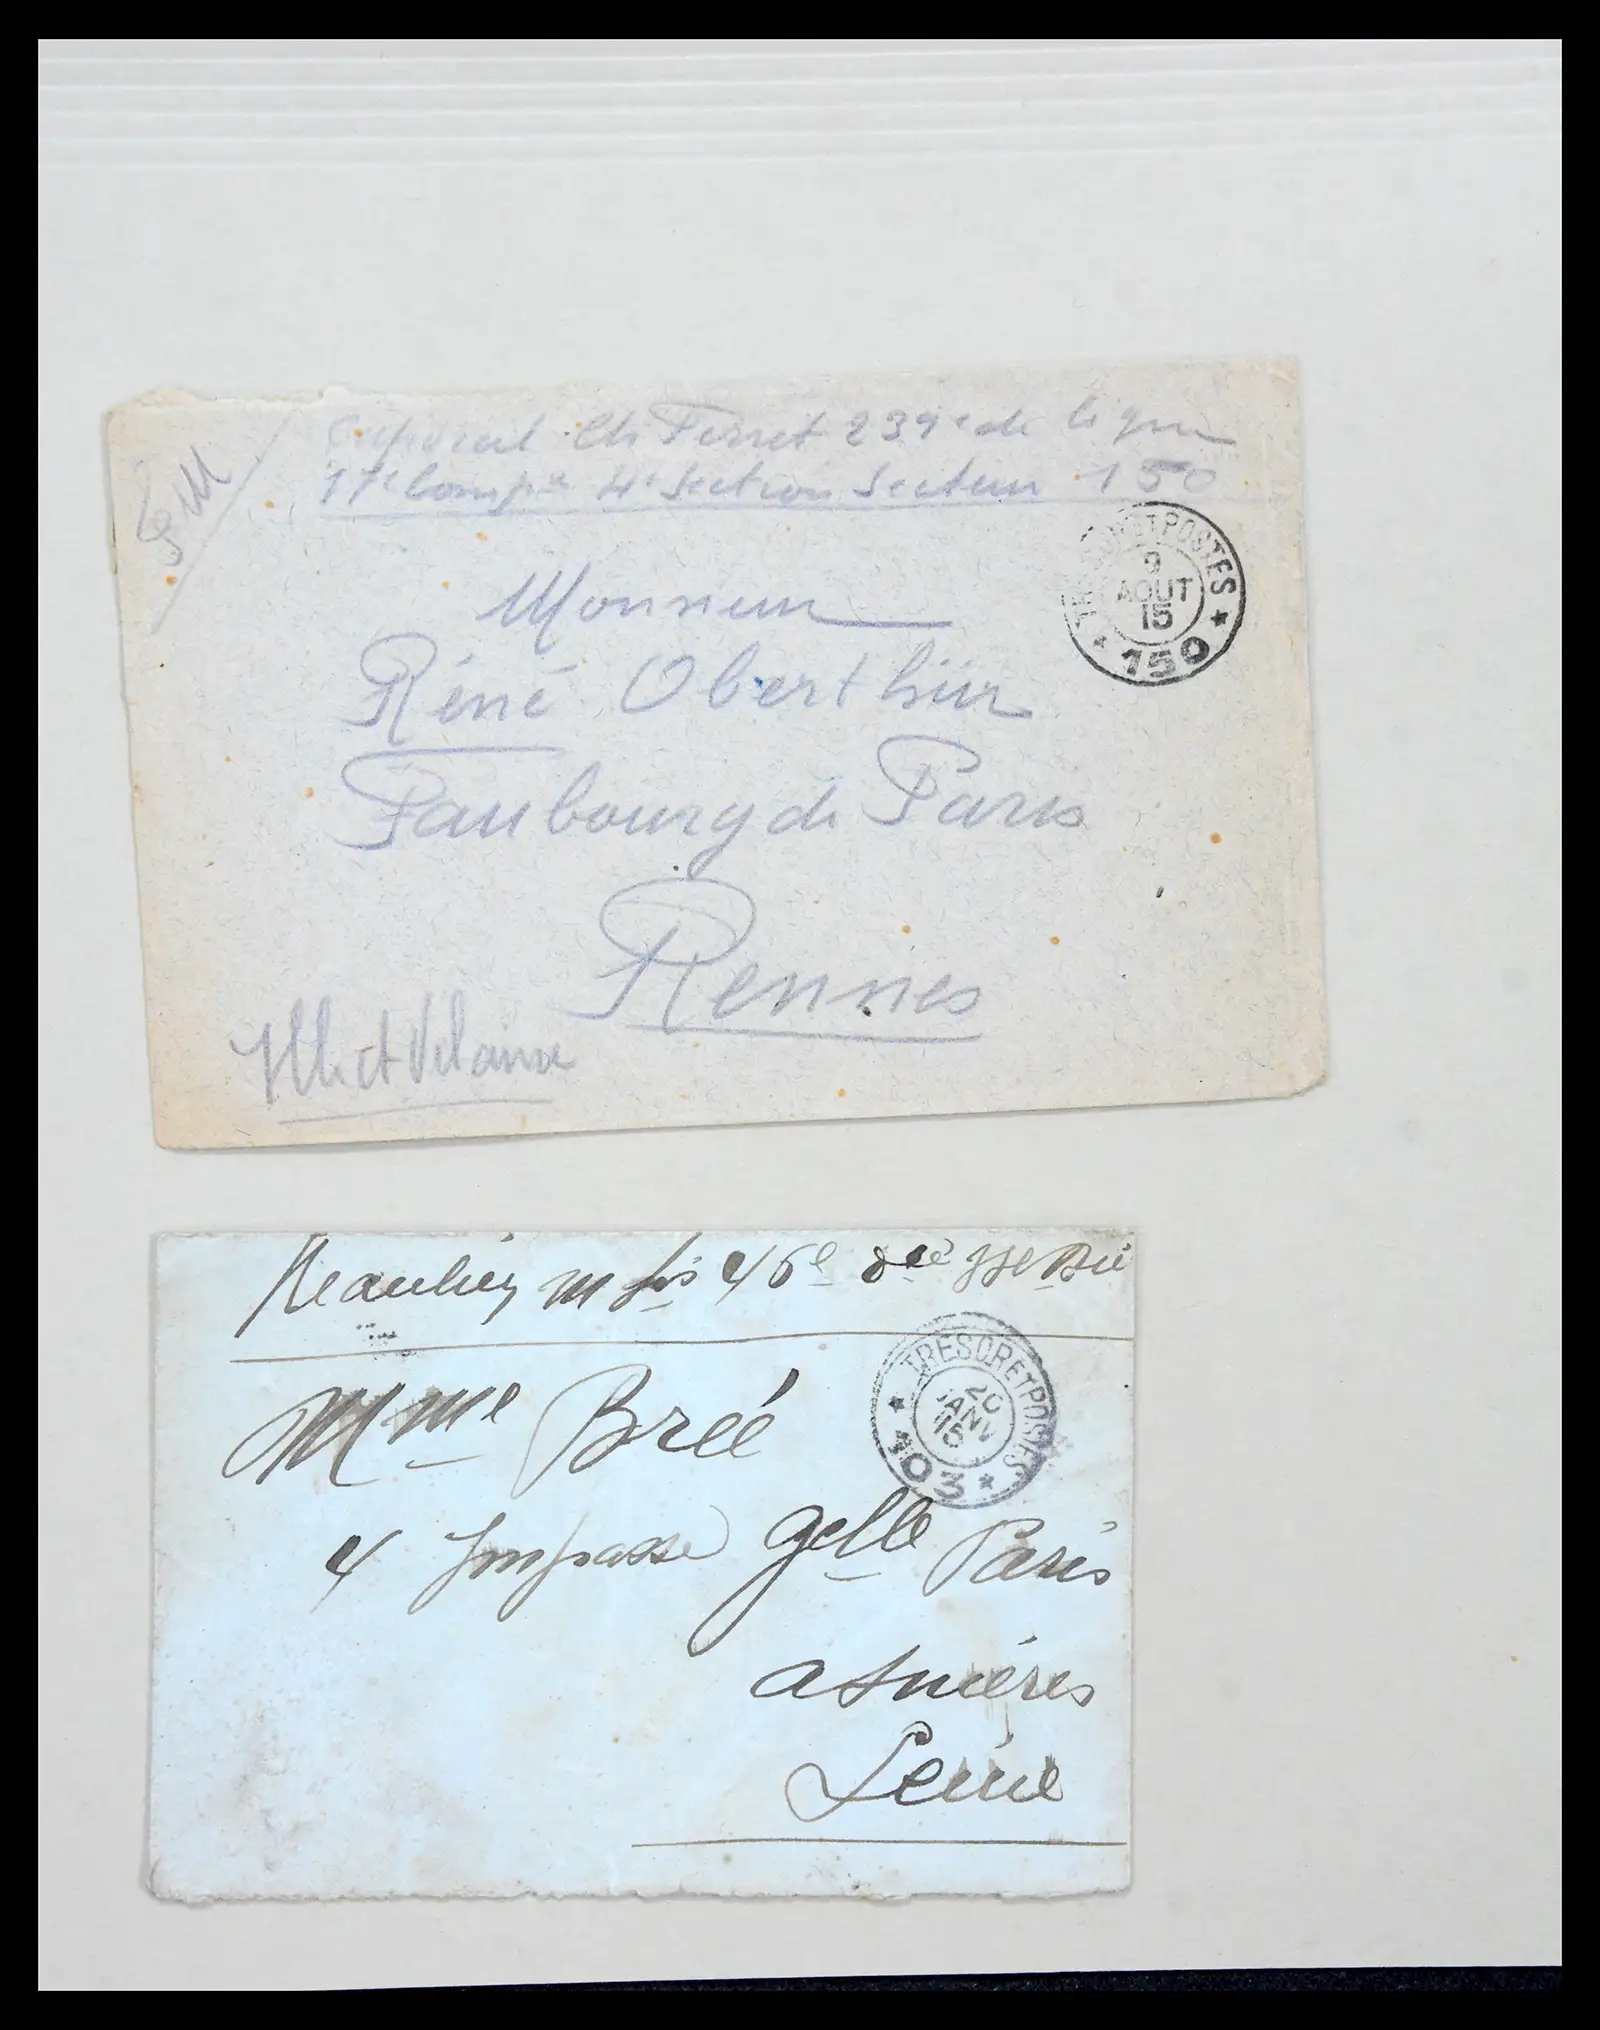 FM
Caporal Ch Ferret 239e de ligne
17e Compie 4e Section Secteur 150
TRESOR ET POSTES
9
AOUT
15
* 150 *
Monsieur
Réné Oberthür
Faubourg de Paris
Rennes
Ille et Vilaine
46e
TRESOR ET POSTES
20
JANV
15
* 103 *
Mme Breé
4 Impasse Gelle Paris
asnières
Seine